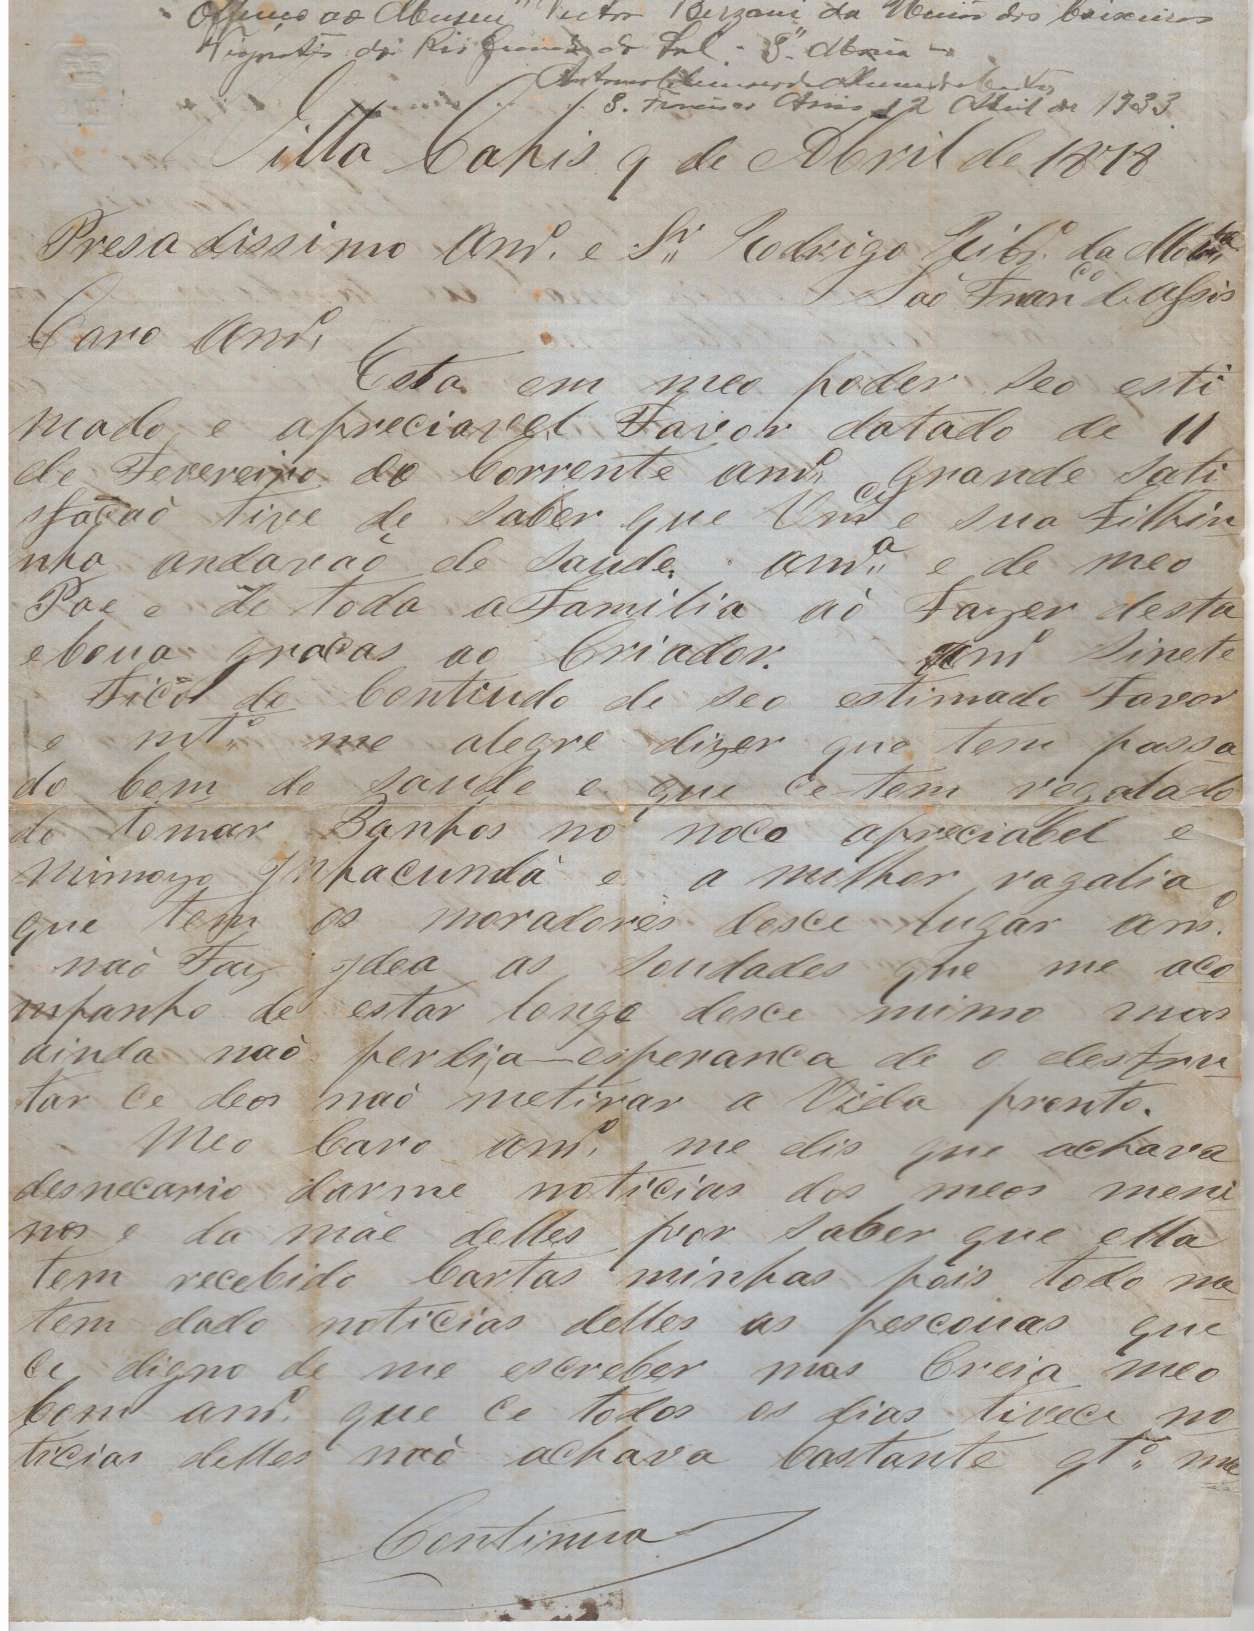 Offereço ao Museu "Victor Bersani" da União dos Caixeiros
Viajantes do Rio Grande do Sul - Sta Maria -
S. Francisco Assis 12 Abril de 1933
Villa Capis 9 de Abril de 1878
Presadissimo Amo. e Sr. Rodrigo Ribro. da Motta
São Franco. de Assis
Caro Amo.
Esta em meo poder seo esti
mado e apreciavel Favor datado de 11
de Fevereiro do Corrente ano. grande sati
sfação tive de saber que Vmce e sua Filhin
nha andavaõ de saude. ama. e de meo
Pae e de toda a Familia aò Fazer desta
e boua gracas ao Criador. amo Sinete
Ficò do Contiudo de seo estimado Favor
e mto. me alegre dizer que tem passa
do bem de saude e que ce tem regalado
de tomar Banhos no noco apreciabel e
mimozo Inhacundà e a milhor ragalia
que tem os moradores desce lugar amo.
naò Faz ydea as soudades que me aco
mpanho de estar longe desce mimo mas
ainda naò perdi a esperanca de o desfru
tar ce deos naò metirar a Vida pronto.
Meo Caro amo. me dis que achava
desnecario darme noticias dos meos meni
nos e da mãe delles por saber que ella
tem recebido Cartas minhas pois todo me
tem dado noticias delles as pescouas que
ce digno de me escreber mas Creia meo
bom amo. que ce todos os dias tivece no
ticias delles naò achava bastante qto. me
Continua